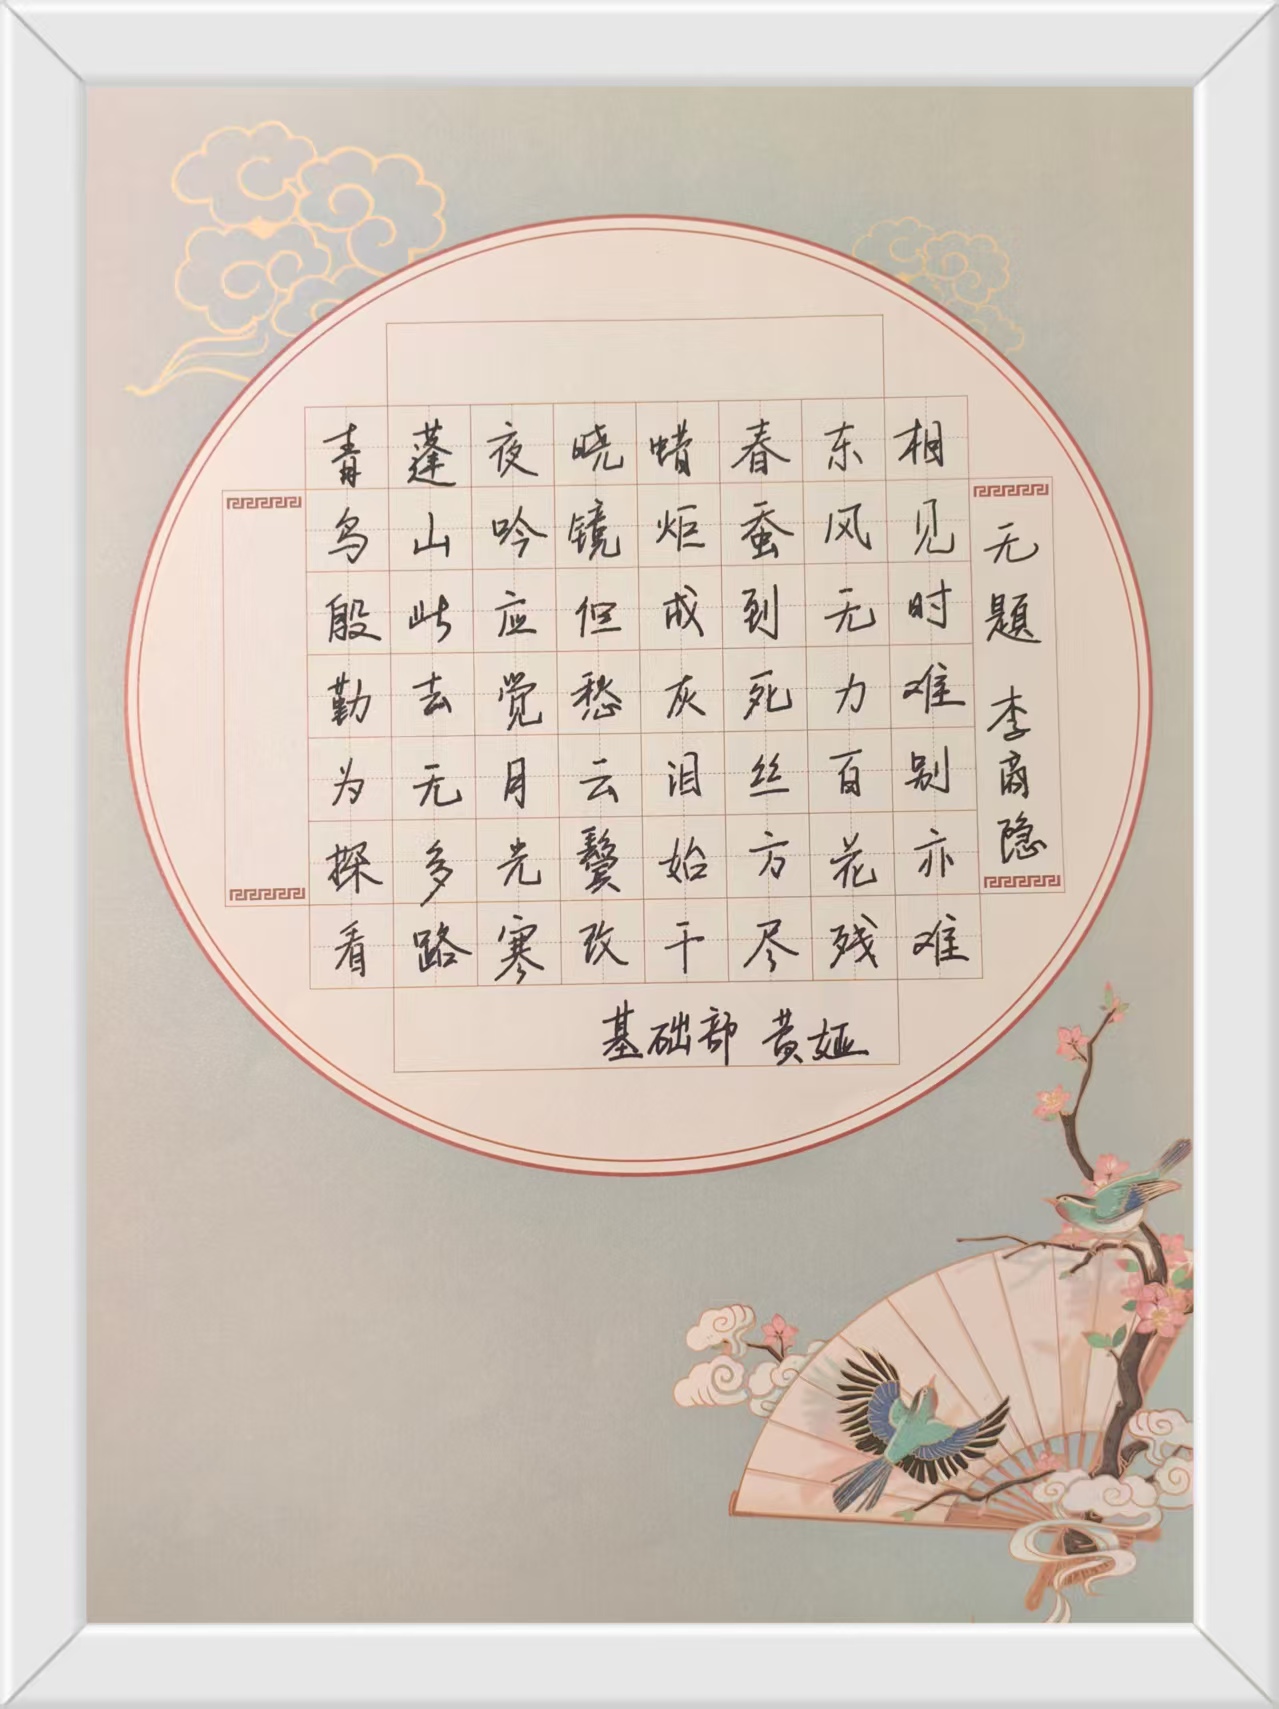 无题 李商隐
相见时难别亦难
东风无力百花残
春蚕到死丝方尽
蜡炬成灰泪始干
晓镜但愁云鬓改
夜吟应觉月光寒
蓬山此去无多路
青鸟殷勤为探看
基础部 黄娅